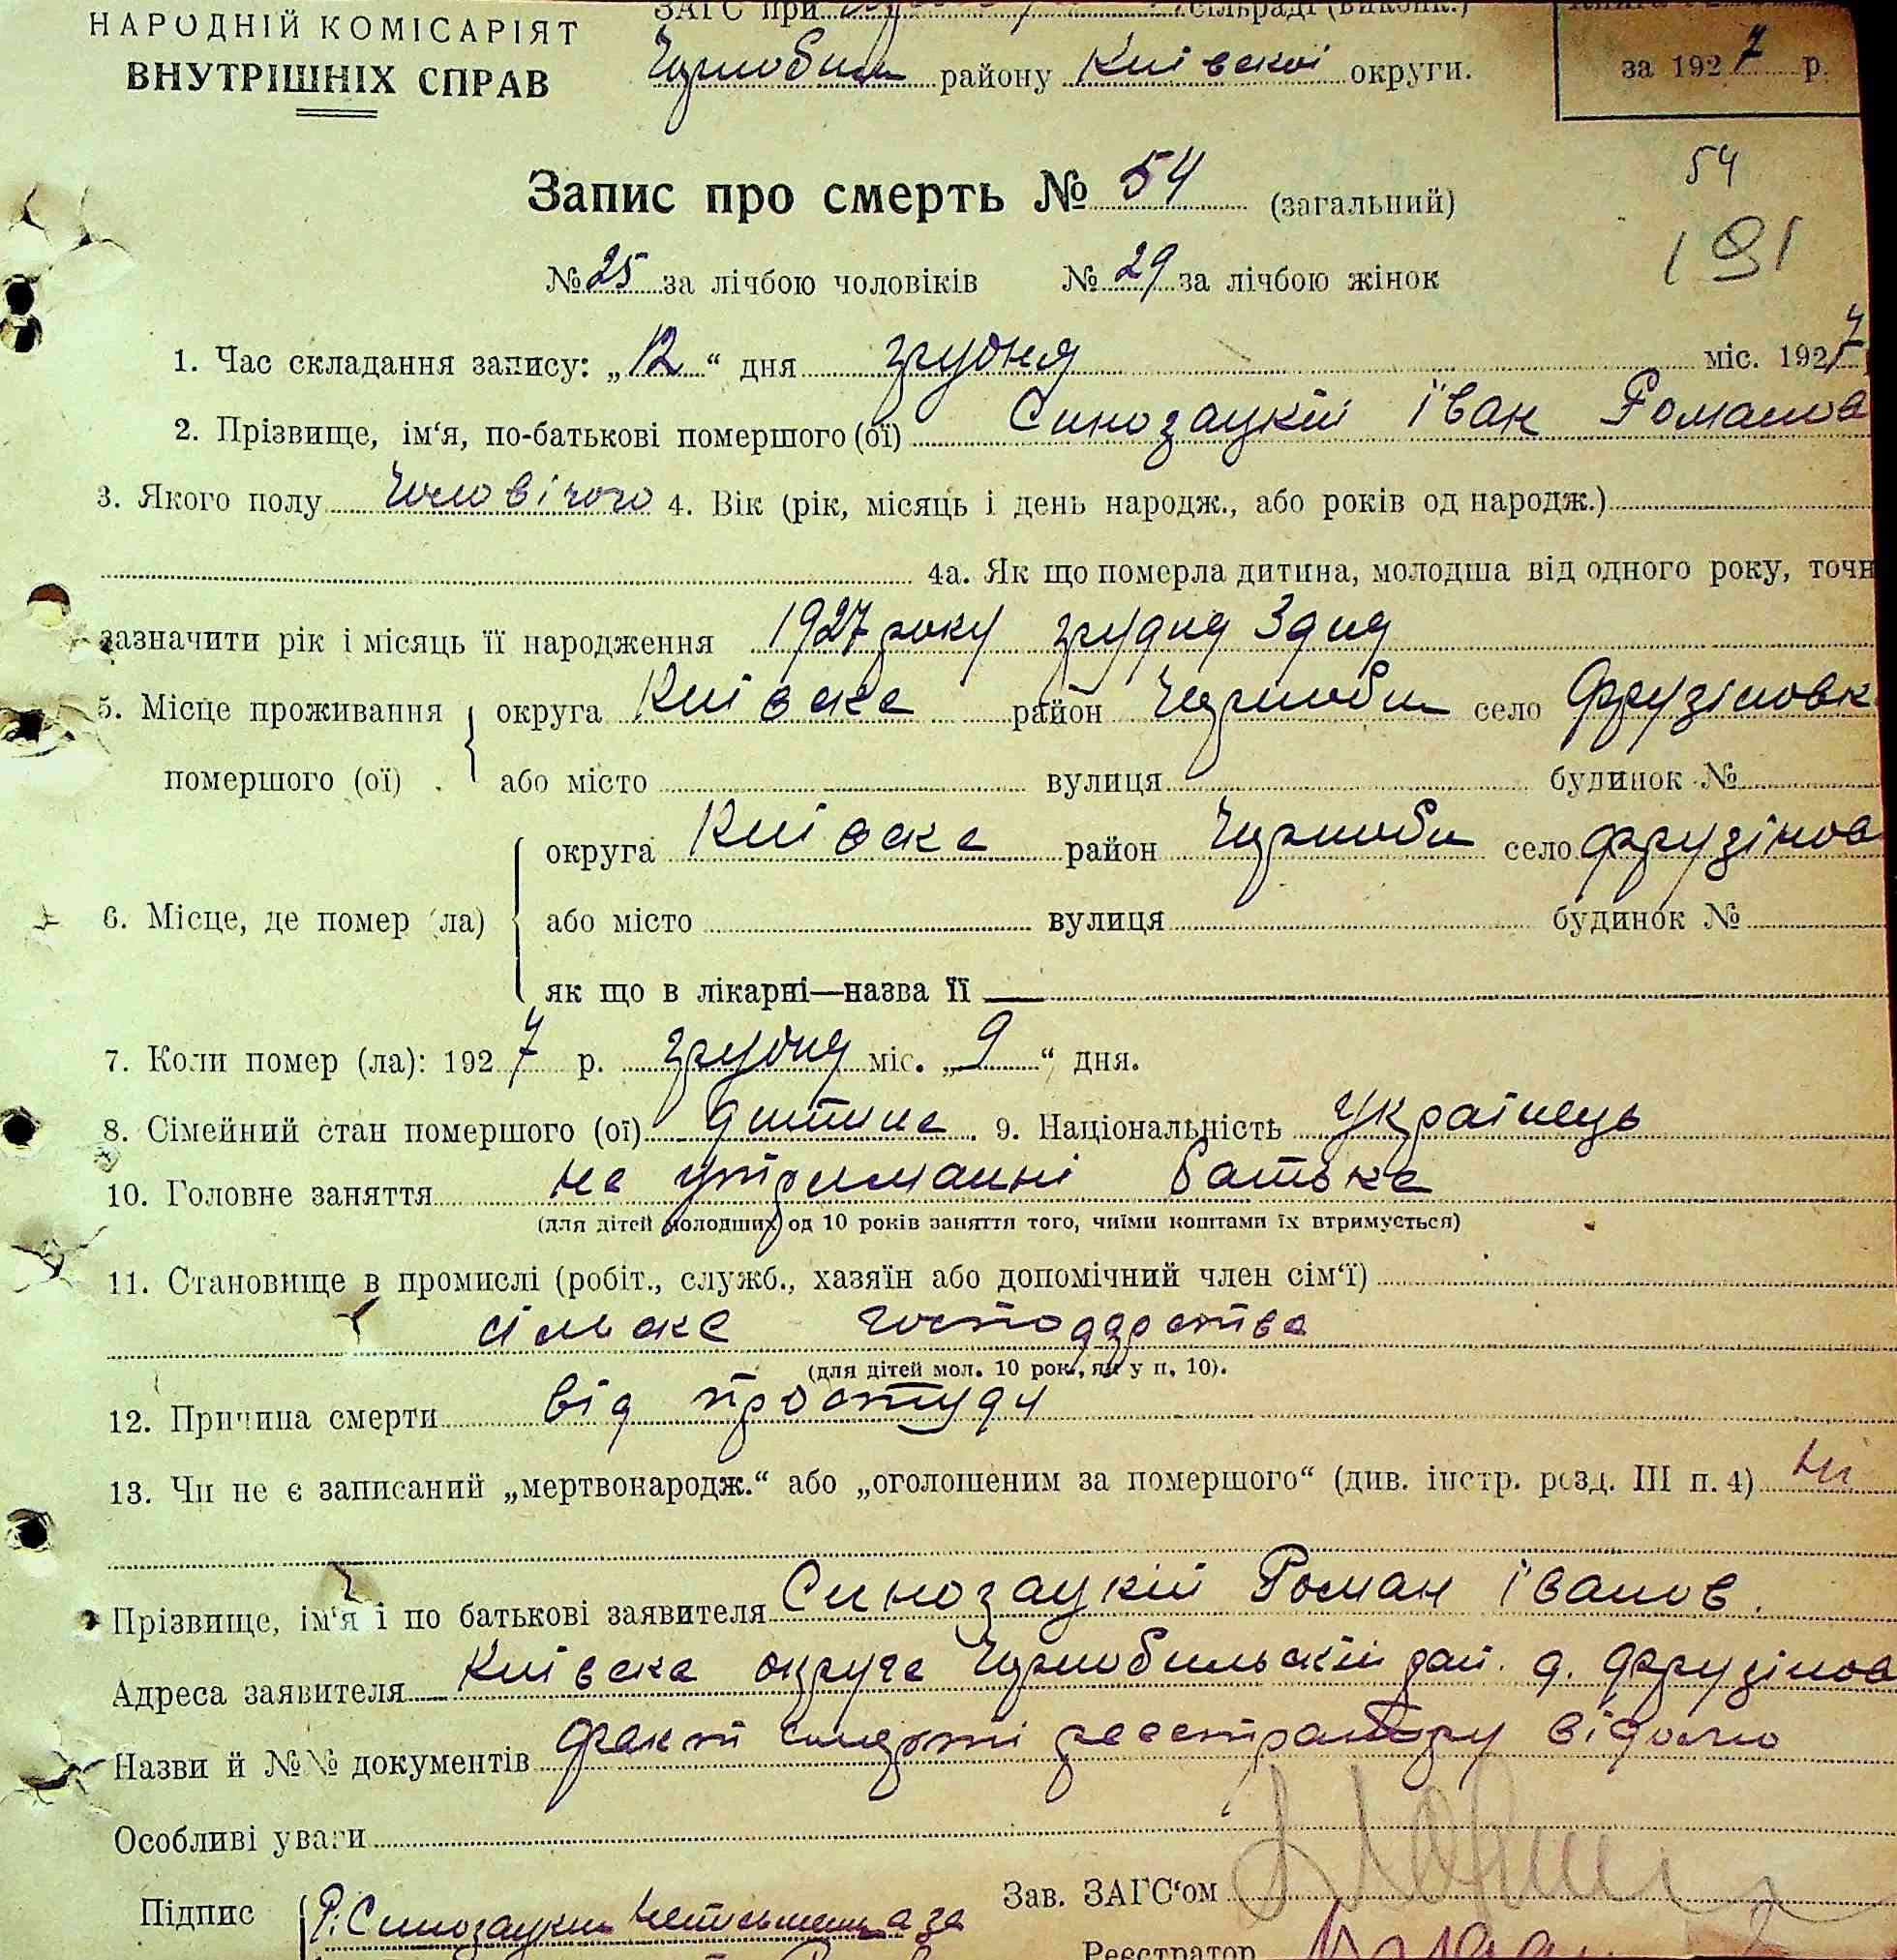 НАРОДНІЙ КОМІСАРІЯТ
ВНУТРІШНІХ СПРАВ
ЗАГС при сільраді (виконк.)
Чорнобил району Київскої округи.
за 1927 р.
Запис про смерть № 54 (загальний)
54
191
№ 25 за лічбою чоловіків № 29 за лічбою жінок
1. Час складання запису: „12“ дня грудня міс. 1927
2. Прізвище, ім‘я, по-батькові помершого (ої) Синозацкій Іван Романов
3. Якого полу Чоловічого 4. Вік (рік, місяць і день народж., або років од народж.)
4а. Як що померла дитина, молодша від одного року, точн
зазначити рік і місяць її народження 1927 року грудня 3 дня
5. Місце проживання округа Київска район Чорноби село Фрузіновк
помершого (ої) або місто вулиця будинок №
округа Київска район Чорноби село Фрузінов
6. Місце, де помер (ла) або місто вулиця будинок №
як що в лікарні—назва її —
7. Коли помер (ла): 1927 р. грудня міс. „9“ дня.
8. Сімейний стан помершого (ої) дитина. 9. Національність Українець
10. Головне заняття на утриманні батька
(для дітей молодших од 10 років заняття того, чиїми коштами їх втримується)
11. Становище в промислі (робіт., служб., хазяїн або допомічний член сім‘ї)
сільска господарства
(для дітей мол. 10 рок., як у п. 10).
12. Причина смерти від простуди
13. Чи не є записаний „мертвонародж.“ або „оголошеним за помершого“ (див. інстр. розд. III п. 4) ні
Прізвище, ім‘я і по батькові заявителя Синозацкій Роман Іванов.
Адреса заявителя Київска округа Чорнобильскій рай. д. Фрузінов
Назви й №№ документів Факт смерті реєстратору відомо
Особливі уваги
Зав. ЗАГС‘ом
Підпис Р. Синозацкий а за
Реєстратор